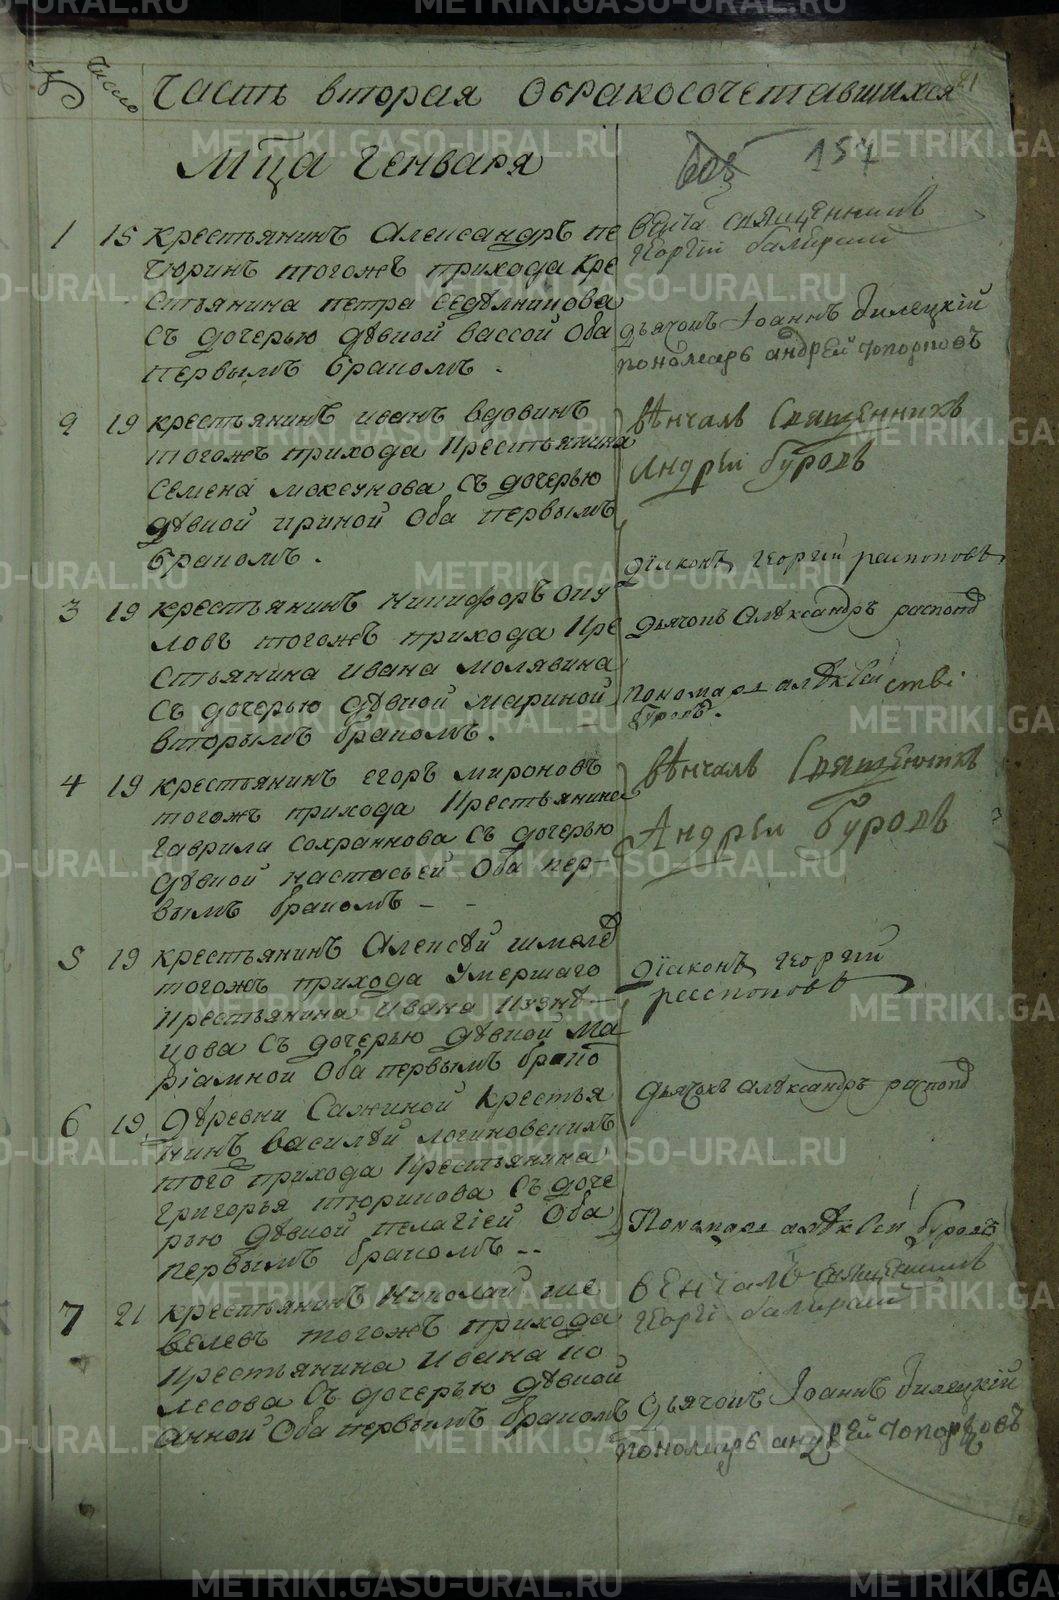 № число Часть вторая обракосочетавшихся 21
Мца Генваря
157
1 15 крестьянинъ Александръ пе
тюринъ тогожъ прихода кре
стьянина петра седѣлникова
съ дочерью дѣвкой вассой оба
первымъ бракомъ.
священникъ
георгій
дьячокъ Іоаннъ Билецкій
пономарь андрей топорковъ
2 19 крестьянинъ иванъ вдовинъ
тогожъ прихода крестьянина
семена моксунова съ дочерью
дѣвкой ириной оба первымъ
бракомъ.
вѣнчалъ Священникъ
Андрей Буровъ
діаконъ георгій распоповъ
3 19 крестьянинъ никифоръ оку
ловъ тогожъ прихода кре
стьянина ивана молявина
съ дочерью дѣвкой мариной
вторымъ бракомъ.
дьячокъ Алѣксандръ распоп
пономарь алѣксей
буровъ.
4 19 крестьянинъ егоръ мироновъ
тогожъ прихода крестьянина
гаврила сохранкова съ дочерью
дѣвкой настасьей оба пер-
вымъ бракомъ - -
вѣнчалъ Священникъ
Андрей Буровъ
5 19 крестьянинъ Алексѣй шмелѐ
тогожъ прихода умершаго
крестьянина ивана кузнѣ-
цова съ дочерью дѣвкой ма
ріамной оба первымъ брако
діаконъ георгій
распоповъ
дьячокъ алѣксандръ распоп
6 19 дѣревни Сажиной крестья
нинъ василѣй логиновскихъ
того прихода крестьянина
григорья тюрикова съ доче
рью дѣвкой пелагіей оба
первымъ бракомъ --
Пономарь алѣксѣй буровъ
7 21 крестьянинъ Николай ше
велевъ тогожъ прихода
крестьянина ивана ко
лесова съ дочерью дѣвкой
анной оба первымъ бракомъ
венчалъ священникъ
георгі
дьячокъ Іоаннъ Билецкій
пономарь андрей топорковъ